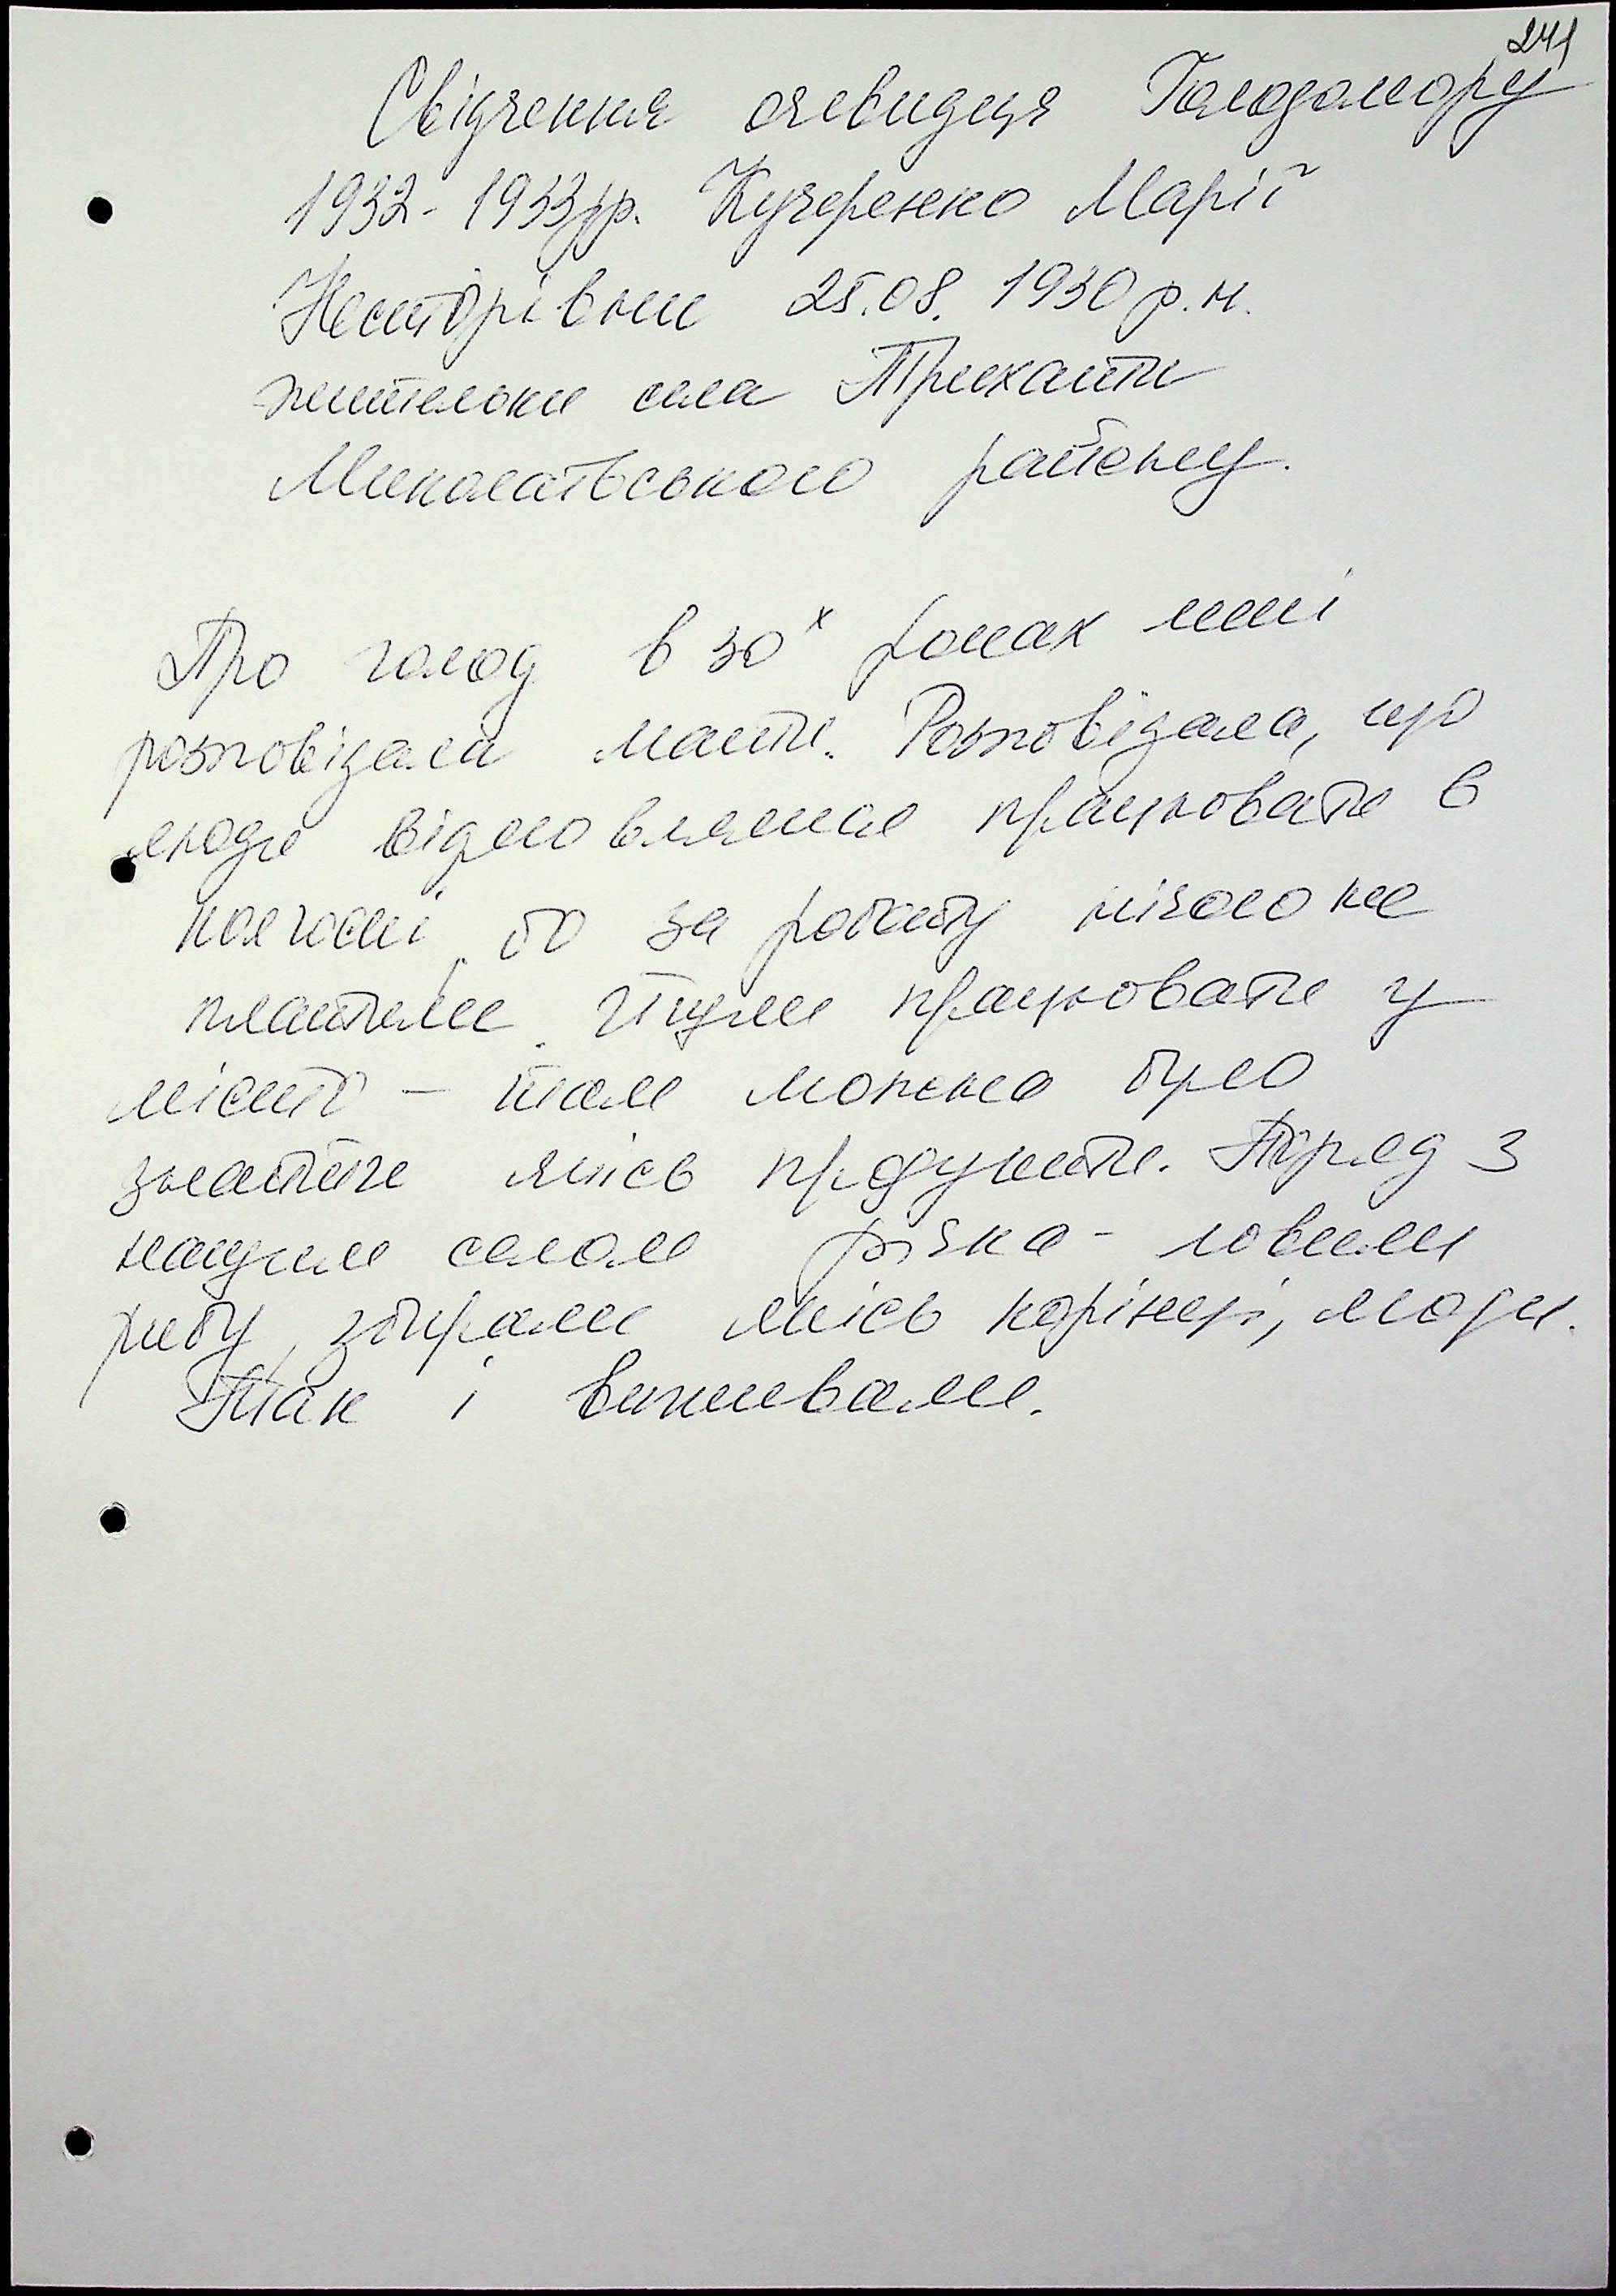 241
Свідчення очевидця Голодомору
1932-1933рр. Кучеренко Марії
Несторівни 25.08.1930 р.н.
жительки села Трихати
Миколаївського району.
Про голод в 30х роках мені
розповідала мати. Розповідала, що
люди відмовлялися працювати в
колгоспі, бо за роботу нічого не
платили. Йшли працювати у
місто – там можна було
знайти якісь продукти. Поряд з
нашим селом річка – ловили
рибу, збирали якісь корінці, ягоди.
Так і виживали.